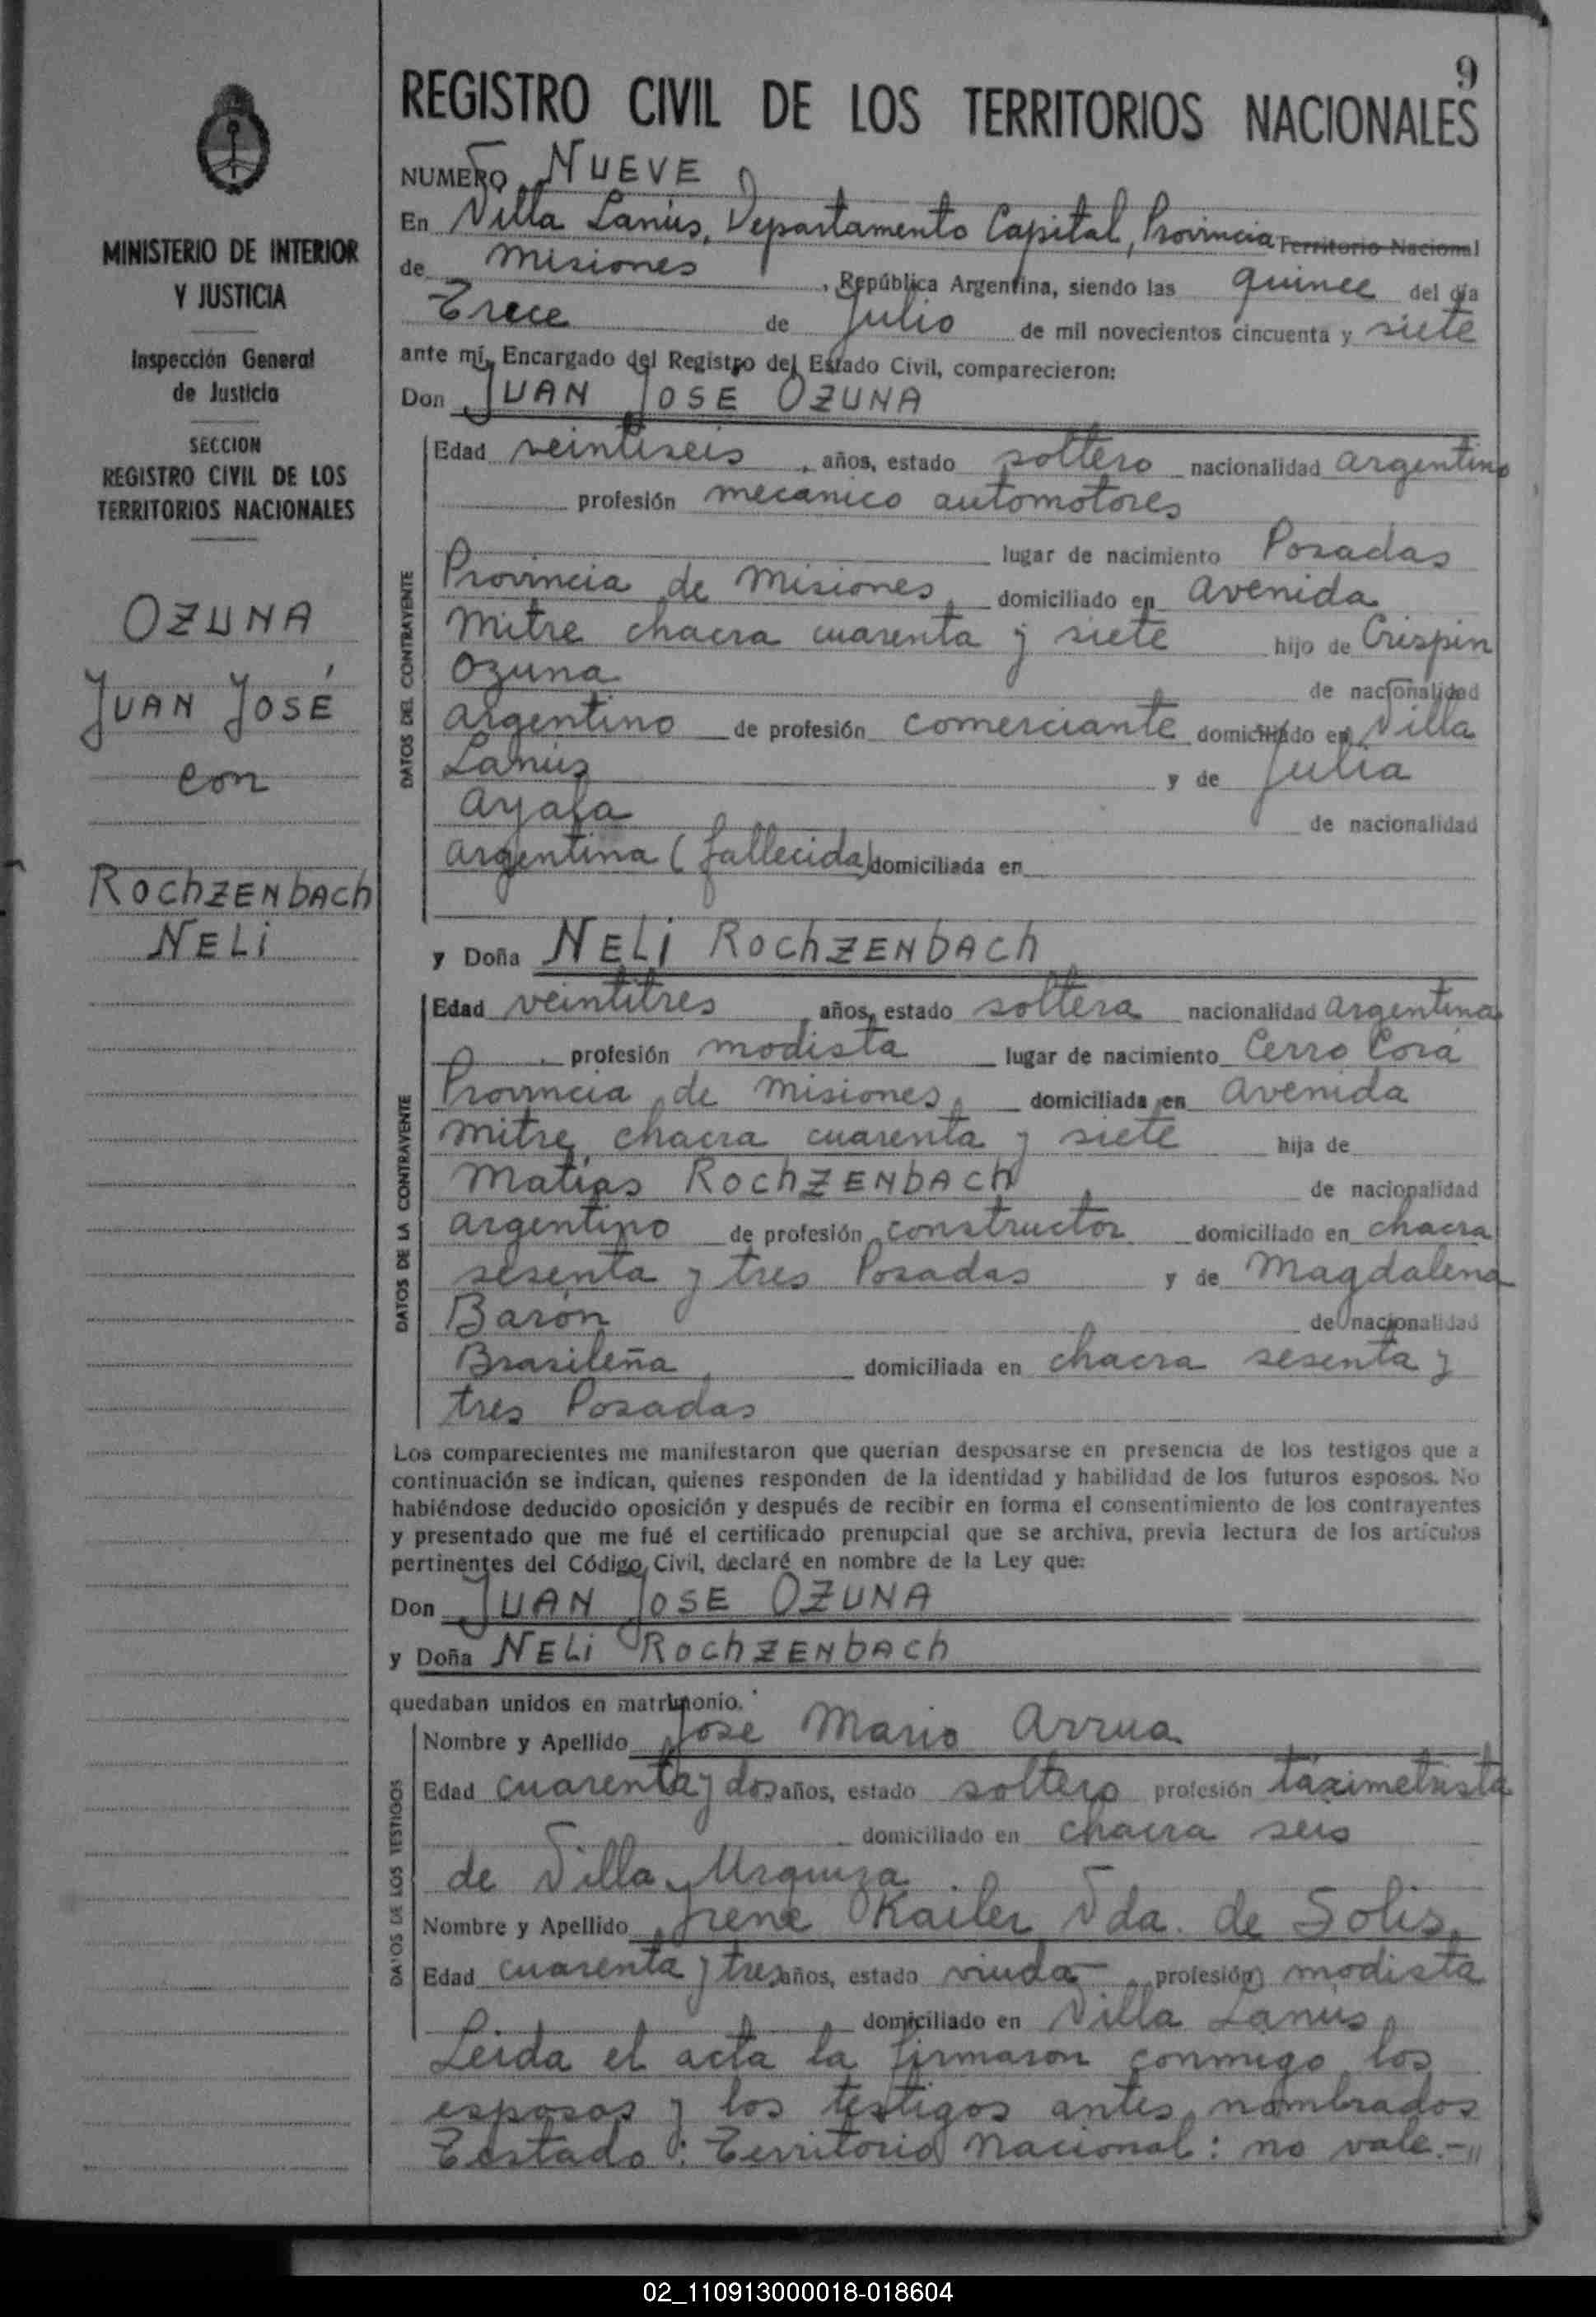 9
REGISTRO CIVIL DE LOS TERRITORIOS NACIONALES
NUMERO NUEVE
En Villa Lanús, Departamento Capital, Provincia Territorio Nacional
de Misiones, República Argentina, siendo las quince del día
Trece de Julio de mil novecientos cincuenta y siete
ante mí, Encargado del Registro del Estado Civil, comparecieron:
Don JUAN JOSE OZUNA
MINISTERIO DE INTERIOR
Y JUSTICIA
Inspección General
de Justicia
SECCION
REGISTRO CIVIL DE LOS
TERRITORIOS NACIONALES
OZUNA
JUAN JOSÉ
con
ROChZENbACh
NELi
DATOS DEL CONTRAYENTE
Edad veintiseis, años, estado soltero nacionalidad argentino
profesión mecanico automotores
lugar de nacimiento Posadas
Provincia de Misiones, domiciliado en Avenida
Mitre chacra cuarenta y siete hijo de Crispin
Ozuna de nacionalidad
argentino de profesión comerciante domiciliado en Villa
Lanús y de Julia
Ayala de nacionalidad
argentina (fallecida) domiciliada en
y Doña NELi ROChZENbACh
DATOS DE LA CONTRAYENTE
Edad veintitres, años, estado soltera nacionalidad argentina
, profesión modista lugar de nacimiento Cerro Corá
Provincia de Misiones, domiciliada en Avenida
Mitre, chacra cuarenta y siete hija de
Matias ROChZENbACh de nacionalidad
argentino de profesión constructor domiciliado en chacra
sesenta y tres Posadas y de Magdalena
Barón de nacionalidad
Brasileña, domiciliada en chacra sesenta y
tres Posadas
Los comparecientes me manifestaron que querían desposarse en presencia de los testigos que a
continuación se indican, quienes responden de la identidad y habilidad de los futuros esposos. No
habiéndose deducido oposición y después de recibir en forma el consentimiento de los contrayentes
y presentado que me fué el certificado prenupcial que se archiva, previa lectura de los artículos
pertinentes del Código Civil, declaré en nombre de la Ley que:
Don JUAN JOSE OZUNA
y Doña NELi ROChZENbACh
quedaban unidos en matrimonio.
DATOS DE LOS TESTIGOS
Nombre y Apellido Jose Mario Arrua
Edad cuarenta y dos años, estado soltero profesión taximetrista
domiciliado en chacra seis
de Villa Urquiza
Nombre y Apellido Irene Kailer Vda. de Solis,
Edad cuarenta y tres años, estado viuda, profesión modista
domiciliado en Villa Lanús,
Leida el acta la firmaron conmigo los
esposos y los testigos antes nombrados
Testado: Territorio Nacional: no vale.-"
02_110913000018-018604